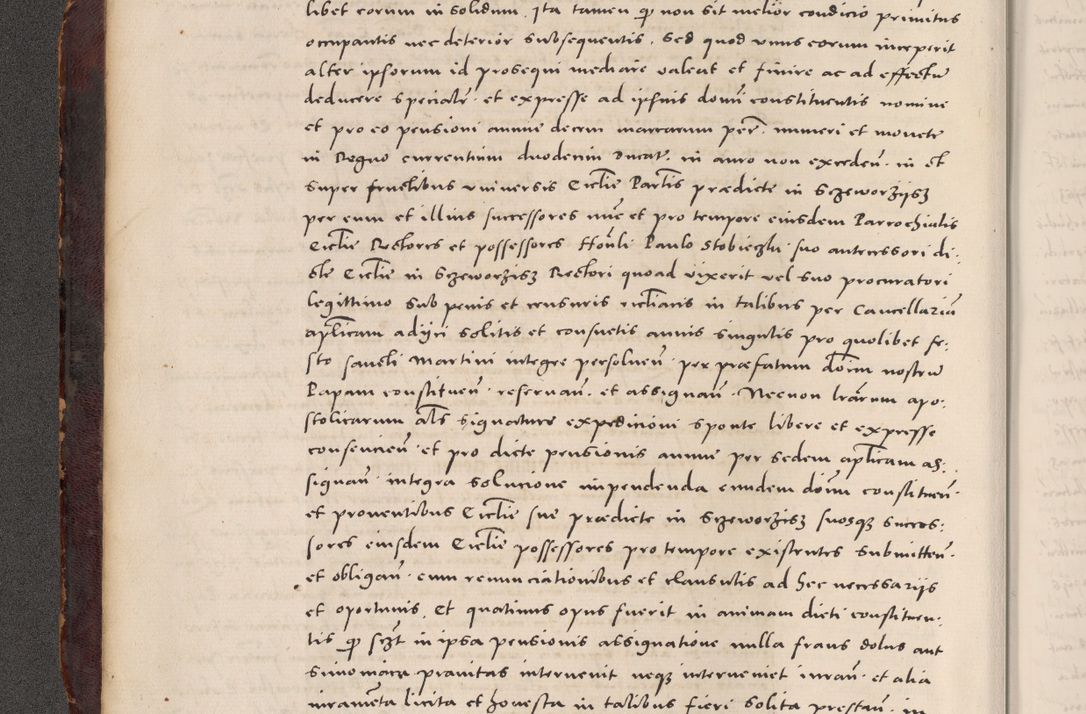 libet eorum in solidum. Ita tamen qp non sit melior condicio primitus
occupantis nec deterior subsequentis. Sed quod unus eorum inceperit
alter ipsorum id prosequi mediare valeat et finire ac ad effectu
deducere specialr. et expresse ad ipsius domi constituentis nomine
et pro eo pensioni annue decem marcarum per. numeri et monete
in Regno currentium duodecim ducat. in auro non excedeñ. in et
super fructibus universis Ecclie Parlis prædicte in Sczeworzyisz
per eum et illius successores nuc et pro tempore eiusdem Parrochialis
Ecclie Rectores et possessores Honli Paulo Stobieczki suo antecessori di:
cte Ecclie in Sczeworzisz Rectori quoad vixerit vel suo procuratori
legittimo sub penis et censuris ecclíacis in talibus per Cancellariã
aplicam adijci solitis et consuetis annis singulis pro quolibet fe:
sto sancti Martini integre persolveñ. per præfatum doim nostru
Papam constitueñ. reservañ. et assignañ. Necnon lrarum apo:
stolicarum als signature expedicioni sponte libere et expresse
consencieñ. et pro dicte pensionis annue per sedem aplicam as:
signañ. integra solucione impendenda eiusdem doim constitueñ.
et proventibus Ecclie sue prædicte in Sczeworzisz suosqz succes:
sores eiusdem Ecclie possessores pro tempore existentes submitteñ.
et obligañ. cum renunciationibus et clausulis ad hec necessarijs
et oportunis. Et quatinus opus fuerit in animam dicti constituen:
tis qp sczt in ipsa pensionis assignatione nulla fraus dolus aut
simoniaca pravitas intervenit neqz interveniet iurañ. et alia
iuramẽta licita et honesta in talibus fieri solita prestañ. in